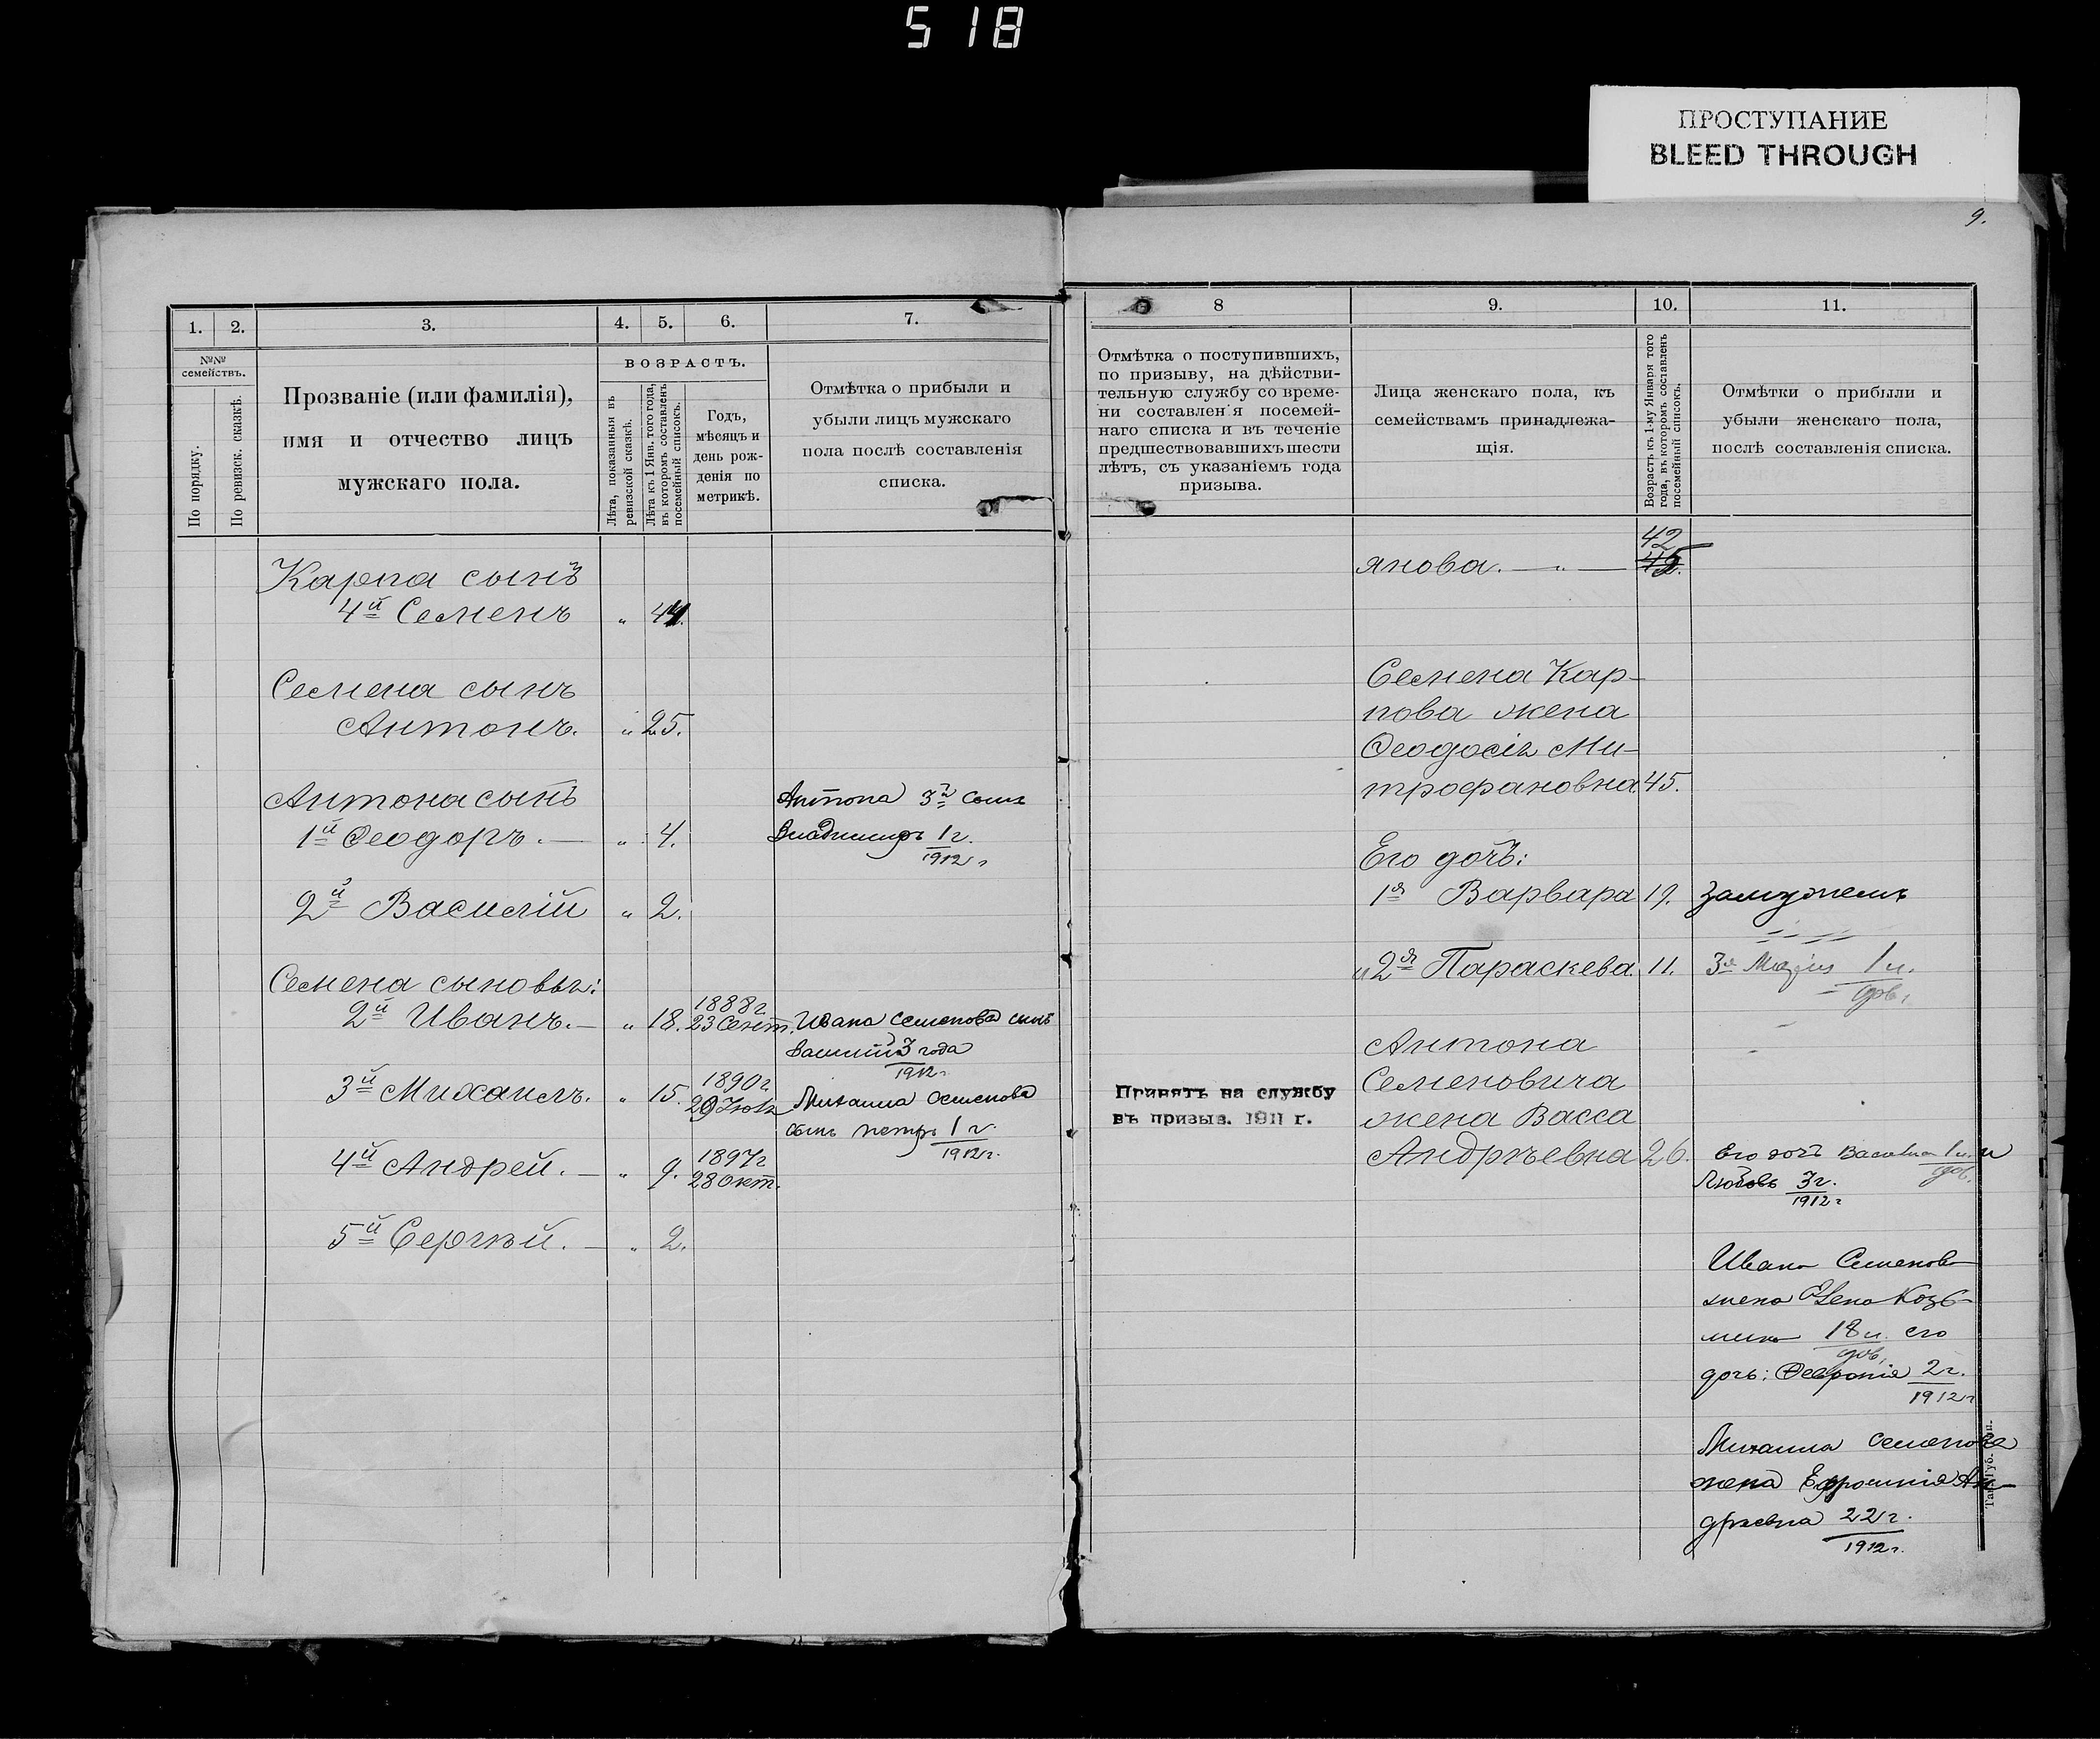 518
ПРОСТУПАНИЕ
BLEED THROUGH
9.
1.
2.
3.
4.
5.
6.
7.
№№
семействъ.
По порядку.
По ревизск. сказкѣ.
Прозваніе (или фамилія),
имя и отчество лицъ
мужскаго пола.
ВОЗРАСТЪ.
Лѣта, показанныя въ
ревизской сказкѣ.
Лѣта къ 1 Янв. того года,
въ которомъ составленъ
посемейный списокъ.
Годъ,
мѣсяцъ и
день рож-
денія по
метрикѣ.
Отмѣтка о прибыли и
убыли лицъ мужскаго
пола послѣ составленія
списка.
Карпа сынъ
4й Семенъ „ 44.
Семена сынъ
Антонъ. „ 25.
Антона сынъ
1й Ѳеодоръ. — „ 4.
Антона 3й сынъ
Владимиръ 1 г.
1912 г
2й Василій „ 2.
Семена сыновья:
2й Иванъ. — „ 18. 1888 г
23 Сент.
Ивана Семенова сынъ
Василий 3 года
1912 г.
3й Михаилъ. „ 15. 1890 г
29 Іюля
Михаила Семенова
сынъ Петръ 1 г.
1912 г.
4й Андрей. — „ 9. 1897 г
28 Окт.
5й Сергѣй. — „ 2.
8
9.
10.
11.
Отмѣтка о поступившихъ,
по призыву, на дѣйстви-
тельную службу со време-
ни составленія посемей-
наго списка и въ теченіе
предшествовавшихъ шести
лѣтъ, съ указаніемъ года
призыва.
Лица женскаго пола, къ
семействамъ принадлежа-
щія.
Возрастъ къ 1-му Января того
года, въ которомъ составленъ
посемейный списокъ.
Отмѣтки о прибыли и
убыли женскаго пола,
послѣ составленія списка.
янова. — „ — 42
Семена Кар-
пова жена
Ѳеодосія Ми-
трофановна 45.
Его дочь:
1я Варвара 19. замужемъ
„ 2я Параскева 11. 3я Мария 1 м.
Принятъ на службу
въ призыв. 1911 г.
Антона
Семеновича
жена Васса
Андрѣевна 26.
Его дочь 1 м. и
Любовь 3 г.
1912 г
Ивана Семенова
жена Елена Козь-
мина 18 л. его
дочь: Ѳеврония 2 г.
1912 г
Михаила Семенова
жена Ефросиния Ан-
дреевна 22 г.
1912 г.